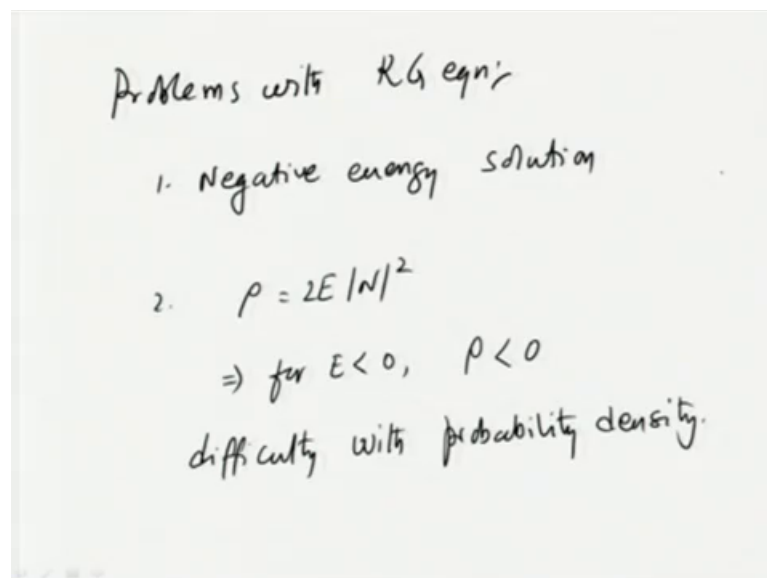 Problems with KG eqn:-
1. Negative energy solution
2. ρ = 2E |N|²
⇒ for E < 0, ρ < 0
difficulty with probability density.